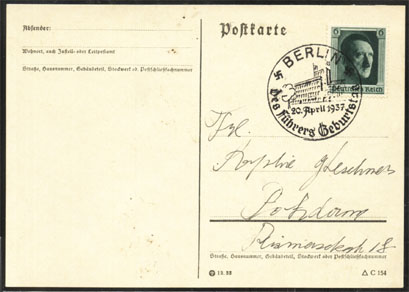 Absender:
Wohnort, auch Zustell- oder Leitpostamt
Straße, Hausnummer, Gebäudeteil, Stockwerk od. Postschließfachnummer
Postkarte
BERLIN
20. April 1937
Des Führers Geburtstag
6 6
Deutsches Reich
Potsdam
18
Straße, Hausnummer, Gebäudeteil, Stockwerk oder Postschließfachnummer
C 154